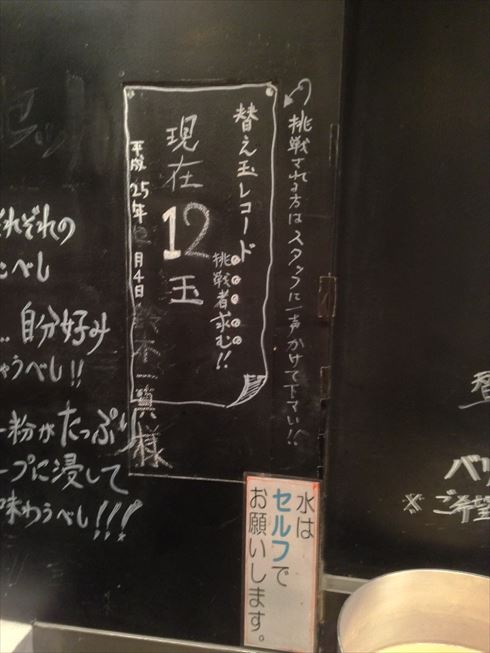 挑戦される方はスタッフに一声かけて下さい!!
替え玉レコード
挑戦者求む!!
現在
12
玉
平成25年12月4日
様
水は
セルフで
お願いします。
ぞれの
こべし
自分好み
ゃうべし!!
粉がたっぷり
ープに浸して
味わうべし!!!
替
バリ
※ご希望